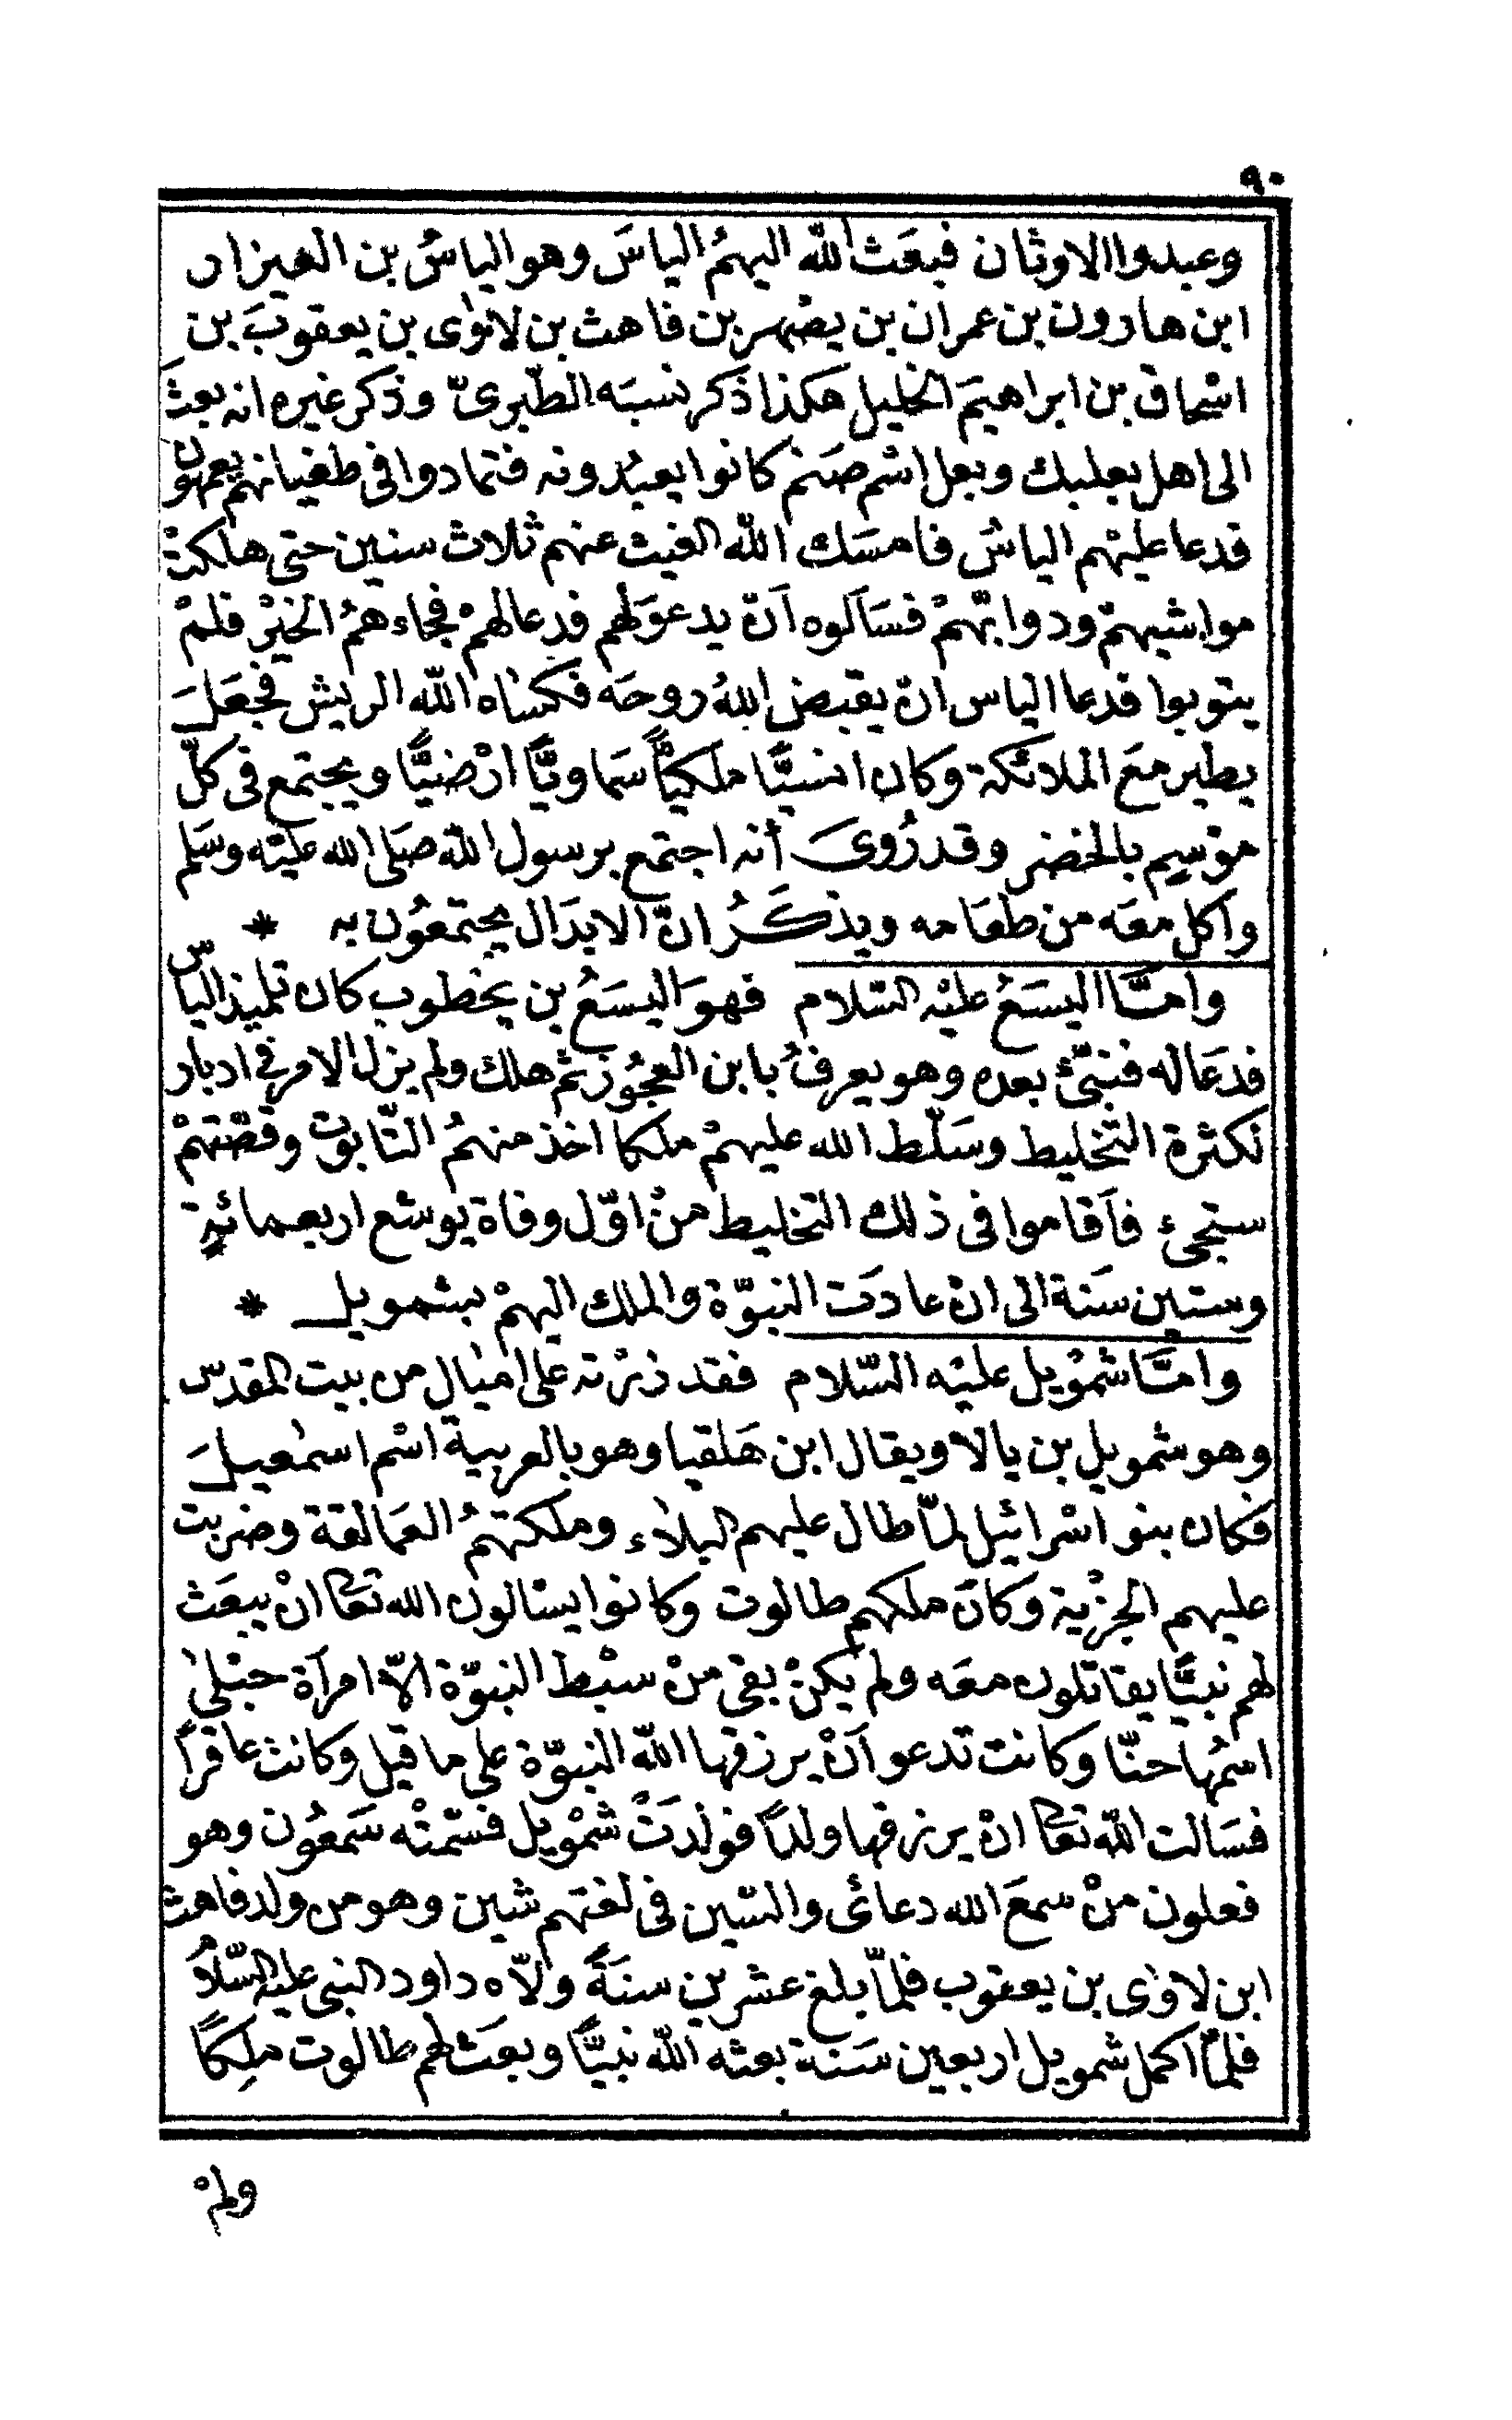 ٩٠
وعبدوا الاوثان فبعَث الله اليهمُ الياسَ وهو الياسُ بن العيزار
ابن هارون بن عمران بن يصهر بن فاهث بن لاوٰى بن يعقوبَ بن
اسْحاق بن ابراهيمَ الخليل هكذا ذكر نسبَه الطّبرىّ وذكر غيره انه بعثَ
الى اهل بعلبك وبعل اسْم صَنم كانوا يعبُدونه فتمادوا فى طغيانهم يعمهون
فدعا عليهم الياسُ فامسَك الله الغيث عنهم ثلاث سنين حتى هلكتْ
مواشيهمْ ودوابّهمْ فسَاَلوه اَنْ يدعوَ لهم فدعا لهمْ فجاءهمُ الخيْر فلمْ
يتوبوا فدعا الياس انْ يقبض اللهُ روحَه فكسَاه الله الريش فجعَلَ
يطير معَ الملائكة وكان انسيًّا ملكيًّا سَماويًّا ارْضيًّا ويجتمع فى كلّ
موْسِم بالخضر وقد رُوىَ أنه اجتمع برسول الله صَلى الله عليْه وسَلم
واَكل معَه من طعَامه ويذكَرُ انّ الابدَال يجتمعُون به *
وامَّا اليسَعُ عليْه السّلام فهوَ اليسَعُ بن يخطوب كان تلميذ الياس
فدعَا له فنبّئ بعده وهو يعرفُ بابن العجُوز ثمّ هلك ولم يزل الامر فى ادبار
لكثرة التّخليط وسَلّط الله عليهمْ ملكا اخذ منهمُ التّابوت وقصّتهمْ
ستجىء فاَقاموا فى ذلك التخليط منْ اوّل وفاة يوشع اربعمائة
وستين سَنة الى انْ عادَت النبوّة والملك اليهمْ بشمويل *
وامَّا شمْويل عليْه السّلام فقد زرْته على اميال من بيت المقدس
وهو شمويل بن يالا ويقال ابن هَلقيا وهو بالعربية اسْم اسمٰعيلَ
فكان بنو اسْرائيل لمّا طال عليهم البلاء وملكتهمُ العَمالقة وضربت
عليهم الجزْية وكانَ ملكهم طالوت وكانوا يسَالون الله تعَالى انْ يبعَث
لهم نبيًّا يقاتلون معَه ولم يكنْ بقى منْ سبْط النبوّة الاّ امرَأة حبْلىٰ
اسمُها حنّا وكانت تدعو اَنْ يرزقها الله النبوّة على ما قيل وكانت عاقراً
فسَالت الله تعَالى انْ يرزقها ولداً فولدَتْ شمْويل فسّمتْه سَمعُون وهو
فعلون منْ سمعَ الله دعائى والسّين فى لغتهم شين وهو من ولد فاهث
ابن لاوٰى بن يعقوب فلمّا بلغ عشرين سنةً ولاّه داود النبى عليه السّلامُ
فلمّا اكمل شمويل اربعين سَنة بعثه الله نبيًّا وبعَث لهم طالوت ملِكًا
ولمْ